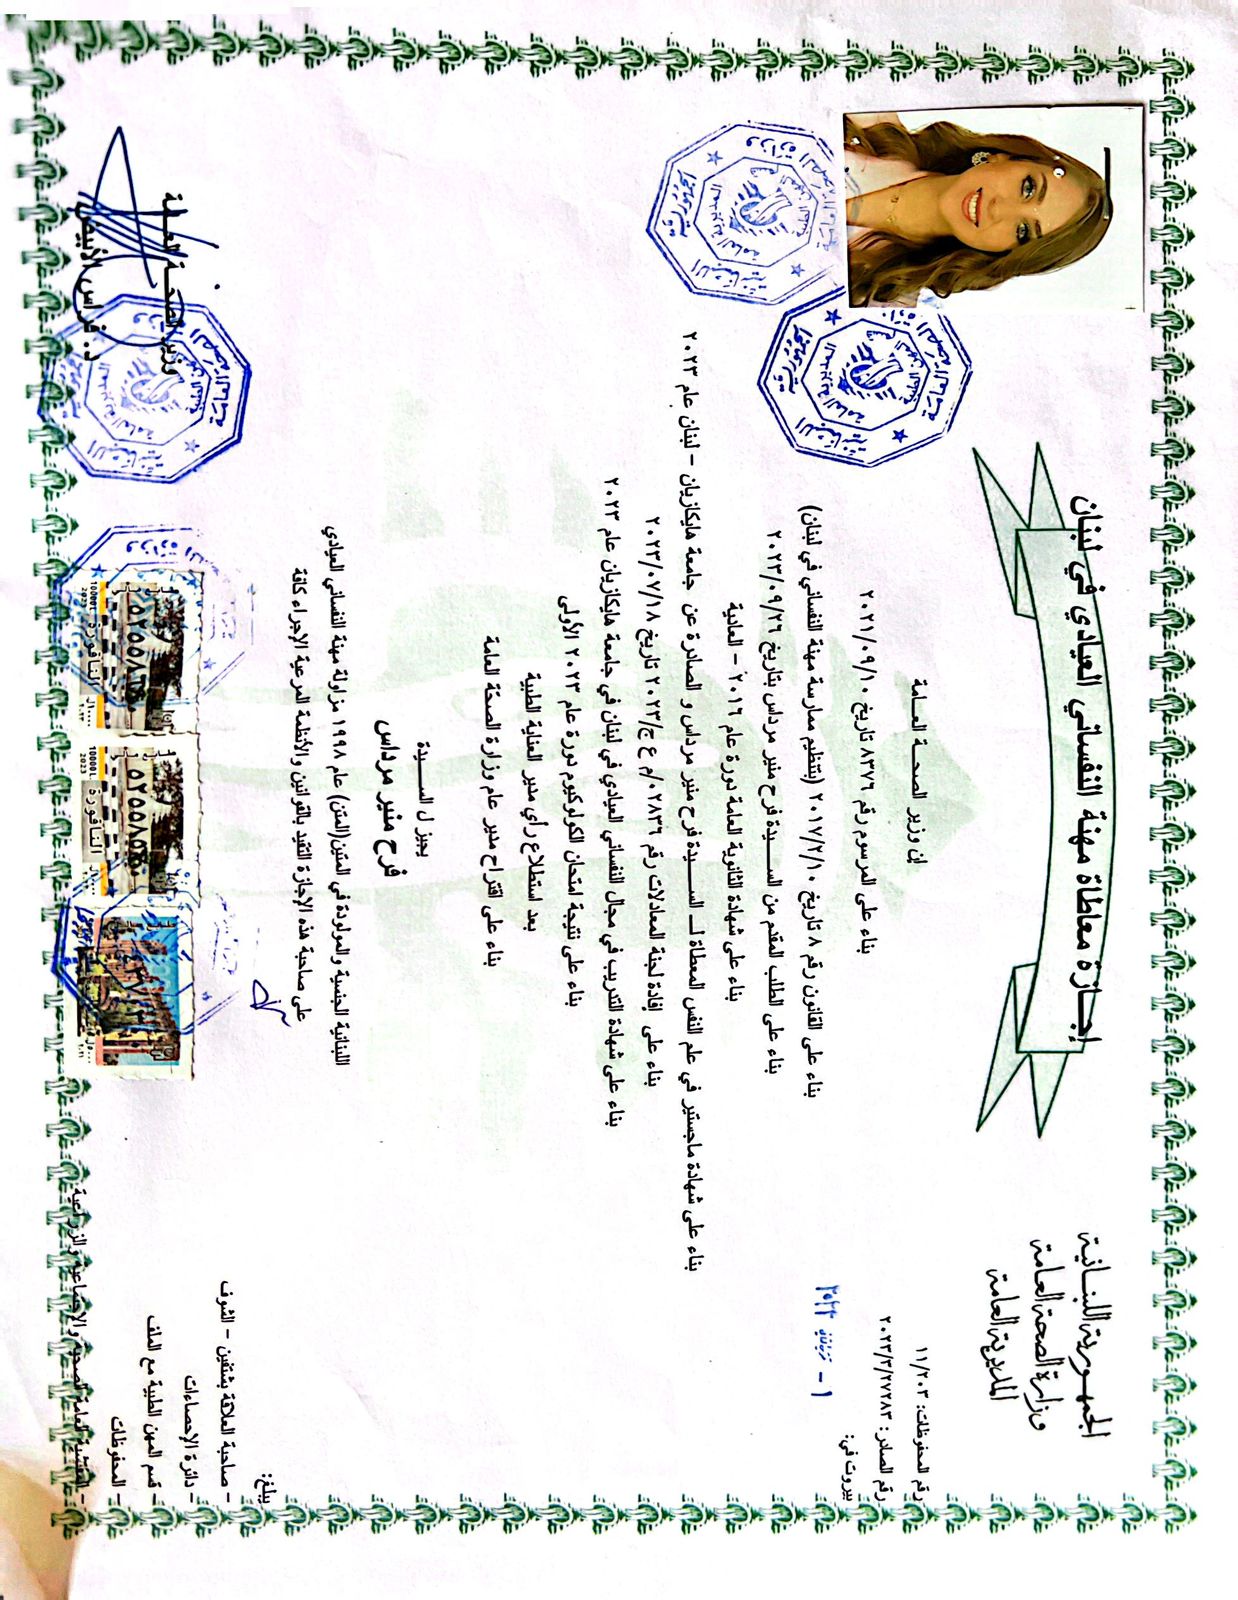 الجمهورية اللبنانية
وزارة الصحة العامة
المديرية العامة
رقم المحفوظات: ١١/٢٠٣
رقم الصادر: ٢٠٢٣/٣/٢٧٢٨٣
بيروت في:
إجازة معاطاة مهنة النفساني العيادي في لبنان
ان وزير الصحة العامة
بناء على المرسوم رقم ٨٣٧٦ تاريخ ٢٠٢١/٠٩/١٠
بناء على القانون رقم ٨ تاريخ ٢٠١٧/٢/١٠ (بتنظيم ممارسة مهنة النفساني في لبنان)
بناء على الطلب المقدم من السيدة فرح منير مرداس بتاريخ ٢٠٢٣/٠٩/٢٦
بناء على شهادة الثانوية العامة دورة عام ٢٠١٦ - العادية
بناء على شهادة ماجستير في علم النفس المعطاة لـ السيدة فرح منير مرداس و الصادرة عن جامعة هايكازيان - لبنان عام ٢٠٢٣
بناء على إفادة لجنة المعادلات رقم ٠٢٨٣٦/م ع ج/٢٠٢٣ تاريخ ٢٠٢٣/٠٧/١٨
بناء على شهادة التدريب في مجال النفساني العيادي في لبنان في جامعة هايكازيان عام ٢٠٢٣
بناء على نتيجة امتحان الكولوكيوم دورة عام ٢٠٢٣ الأولى
بعد استطلاع رأي مدير العناية الطبية
بناء على اقتراح مدير عام وزارة الصحة العامة
يجيز ل السيدة
فرح منير مرداس
اللبنانية الجنسية والمولودة في المتين(المتن) عام ١٩٩٨ مزاولة مهنة النفساني العيادي
على صاحبة هذه الإجازة التقيد بالقوانين والأنظمة المرعية الإجراء كافة
وزير الصحة العامة
د. فراس الأبيض
يبلغ:
- صاحبة العلاقة بشتفين - الشوف
- دائرة الإحصاءات
- قسم المهن الطبية مع الملف
- المحفوظات
- التفتيشية العامة الصحية والإجتماعية والزراعية